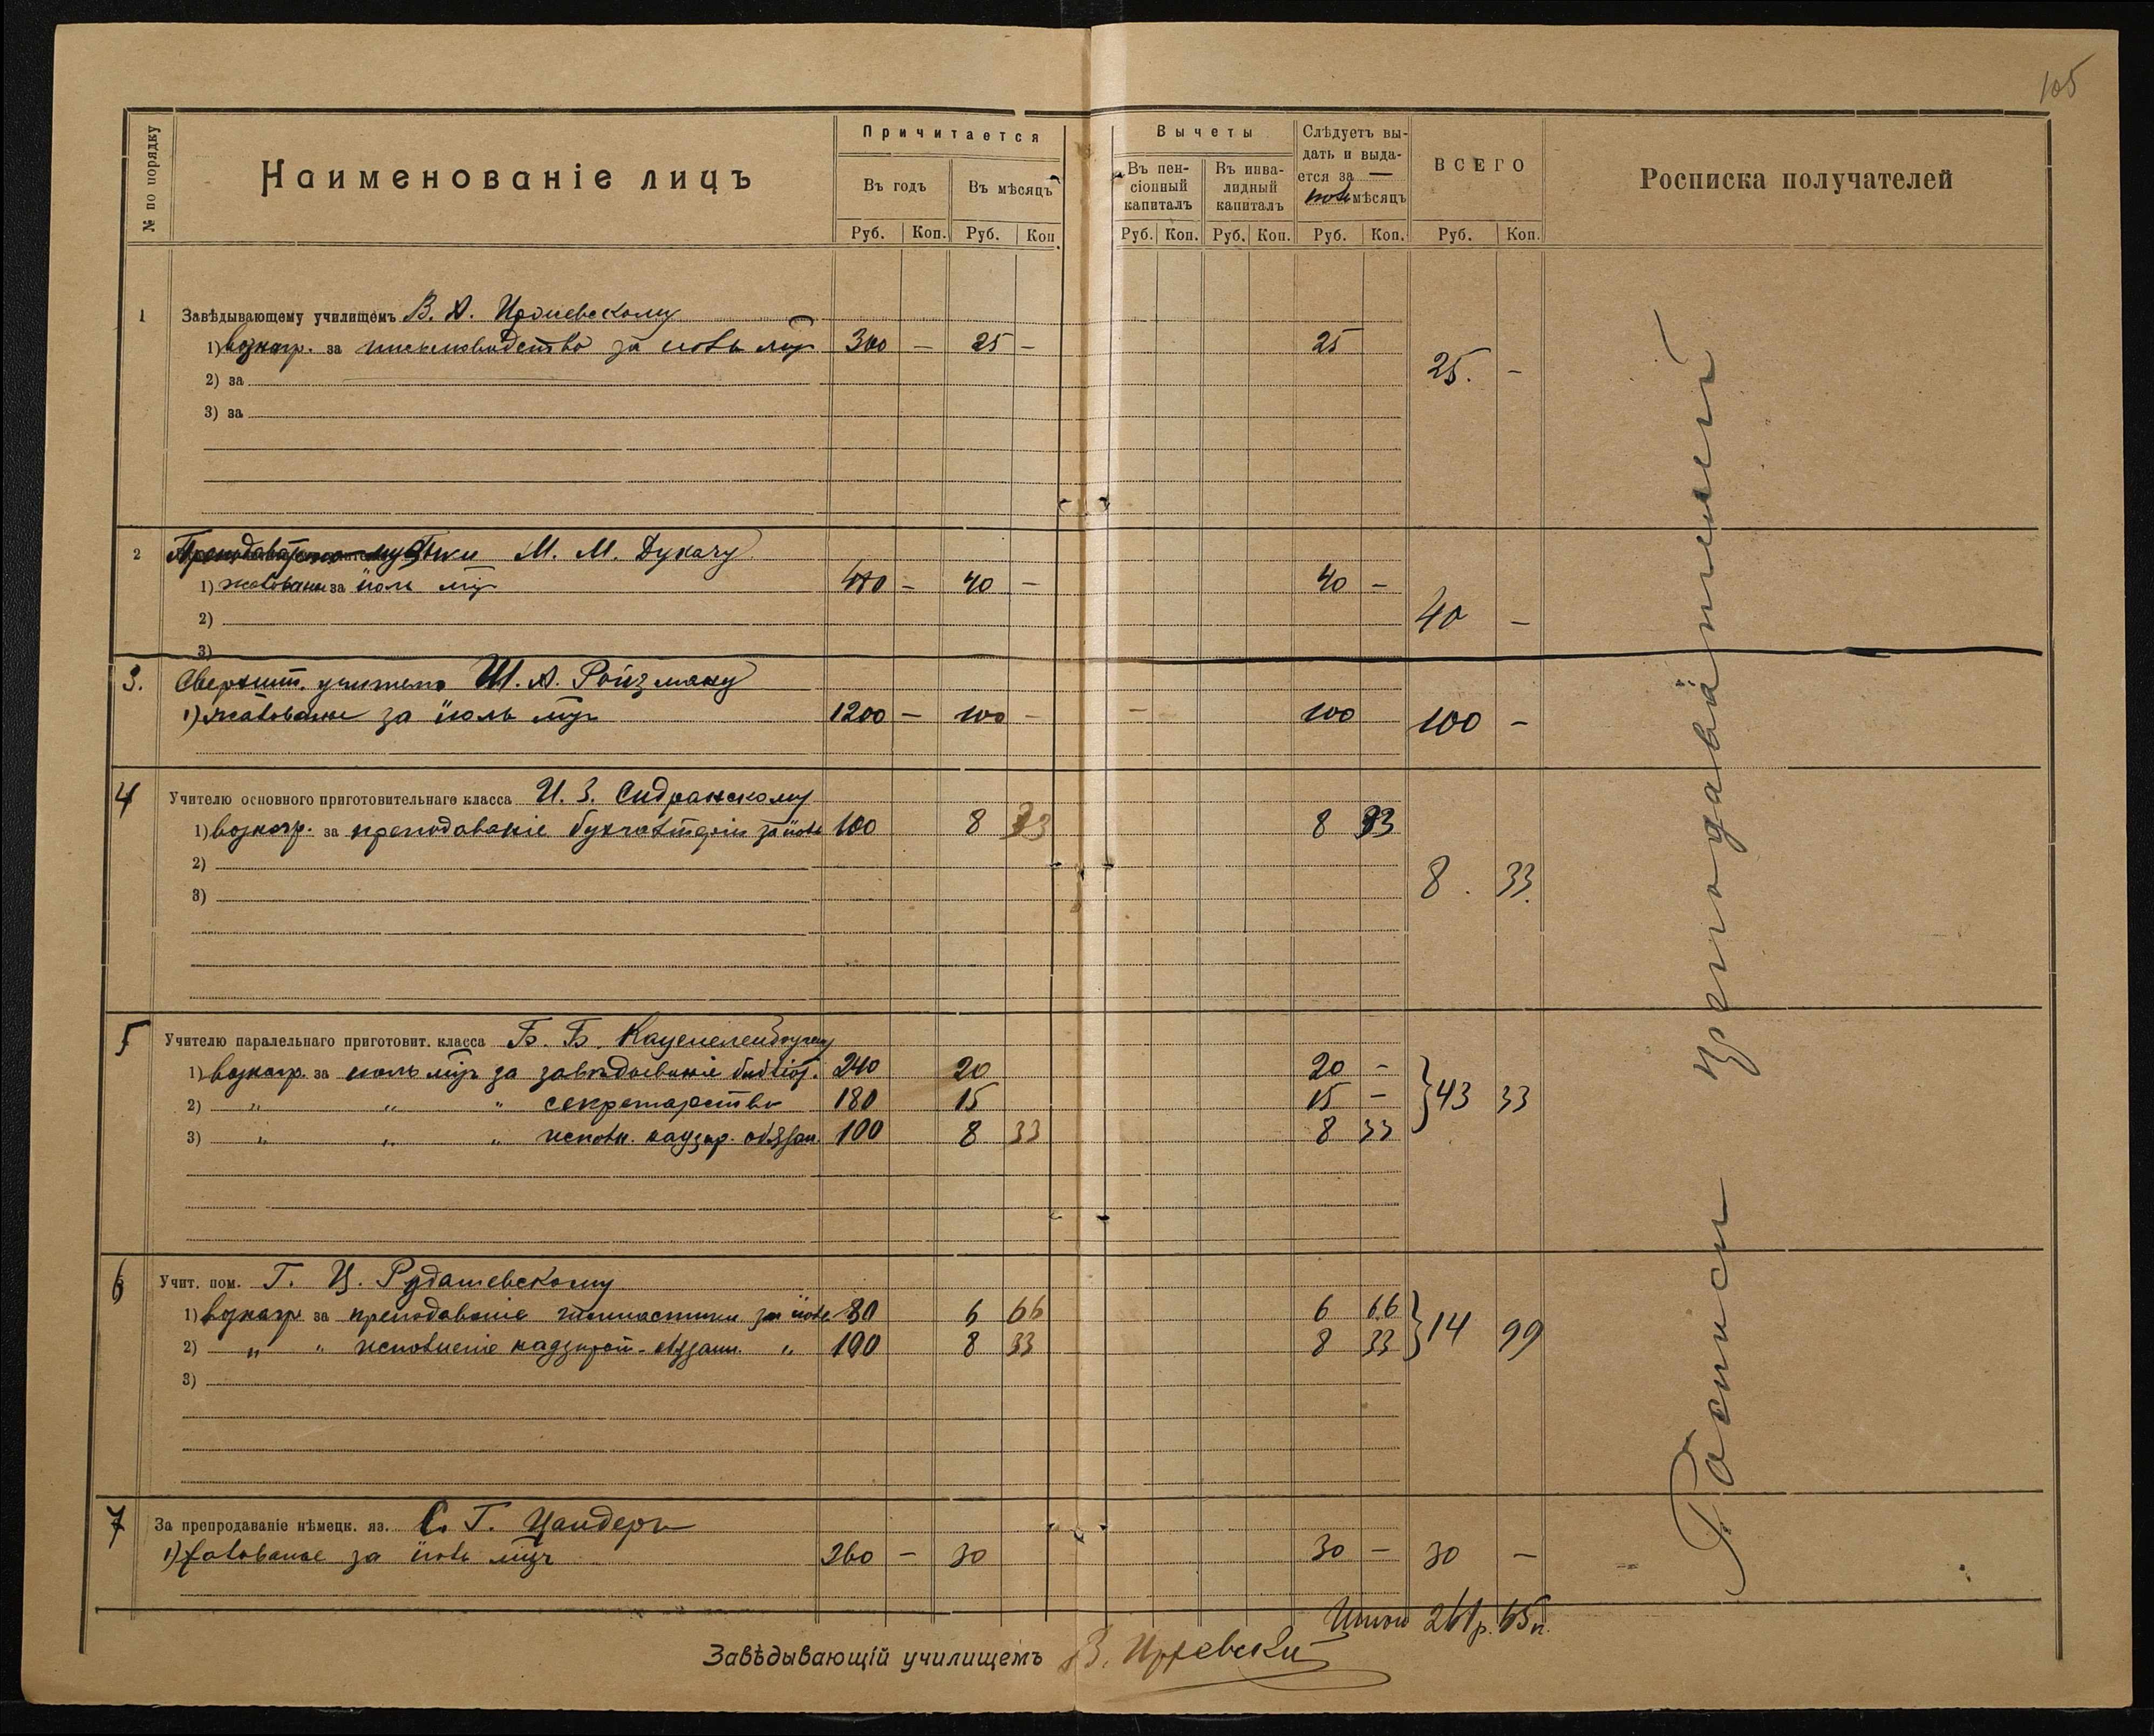 105
№ по порядку
Наименованіе лицъ
Причитается
Въ годъ
Въ мѣсяцъ
Руб. Коп. Руб. Коп.
Вычеты
Въ пенсіонный капиталъ
Въ инвалидный капиталъ
Слѣдуетъ выдать и выдается за — іюль мѣсяцъ
ВСЕГО
Росписка получателей
Руб. Коп. Руб. Коп. Руб. Коп. Руб. Коп.
1 Завѣдывающему училищемъ В. А.
1) вознагр. за письмоводство за іюль мцъ 300 — 25 — 25 25. —
2) за
3) за
2 М. М. Дукачу
1) жалованье за іюль мцъ 480 — 40 — 40 — 40 —
2)
3)
3. Сверхшт. учителю Ш. А. Ройзману
1) жалованье за іюль мцъ 1200 — 100 — — 100 100 —
4 Учителю основного приготовительнаго класса И. З. Сидранскому
1) вознагр. за преподаваніе бухгалтеріи за іюль 100 8 33 8 33 8. 33.
2)
3)
5 Учителю паралельнаго приготовит. класса Б. Б. Каценеленбогену
1) вознагр. за іюль мцъ за завѣдываніе библіот. 240 20 20 —
2) „ „ „ секретарство 180 15 15 — } 43 33
3) „ „ „ исполн. надзир. обязан. 100 8 33 8 33
6 Учит. пом. Г. Ц. Рудашевскому
1) вознагр за преподаваніе гимнастики за іюль 80 6 66 6 66 } 14 99
2) „ „ исполненіе надзират. обязанн. „ 100 8 33 8 33
3)
7 За препродаваніе нѣмецк. яз. С. Г. Цандеръ
1) жалованье за іюль мцъ 360 — 30 30 — 30 —
Итого 261 р. 65 к.
Завѣдывающій училищемъ В.
Росписи преподавателей